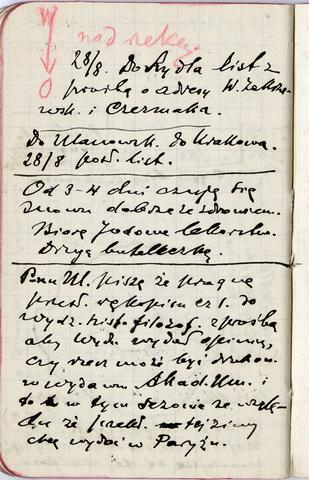 W
nad rzekę
O
28/8. Do Rydla list z
prośbą o adresy W. Zakrzew-
wsk. i Czermaka.
Do Ulanowsk. do Krakowa.
28/8 posł. list.
Od 3-4 dni czuję się
znowu dobrze ze zdrowiem.
Biorę Jodowe lekarstw.
Drugą buteleczkę.
Panu Ul. piszę że pragnę
przedł. rękopism cz 1. do
wydz. hist. filozof. z prośbą
aby Wydz. wydał opinię,
czy rzecz może być drukow.
w wydawn. Akad. Um. i
to w tym sezonie ze wzglę-
du że przekł.
chcę wydać w Paryżu.